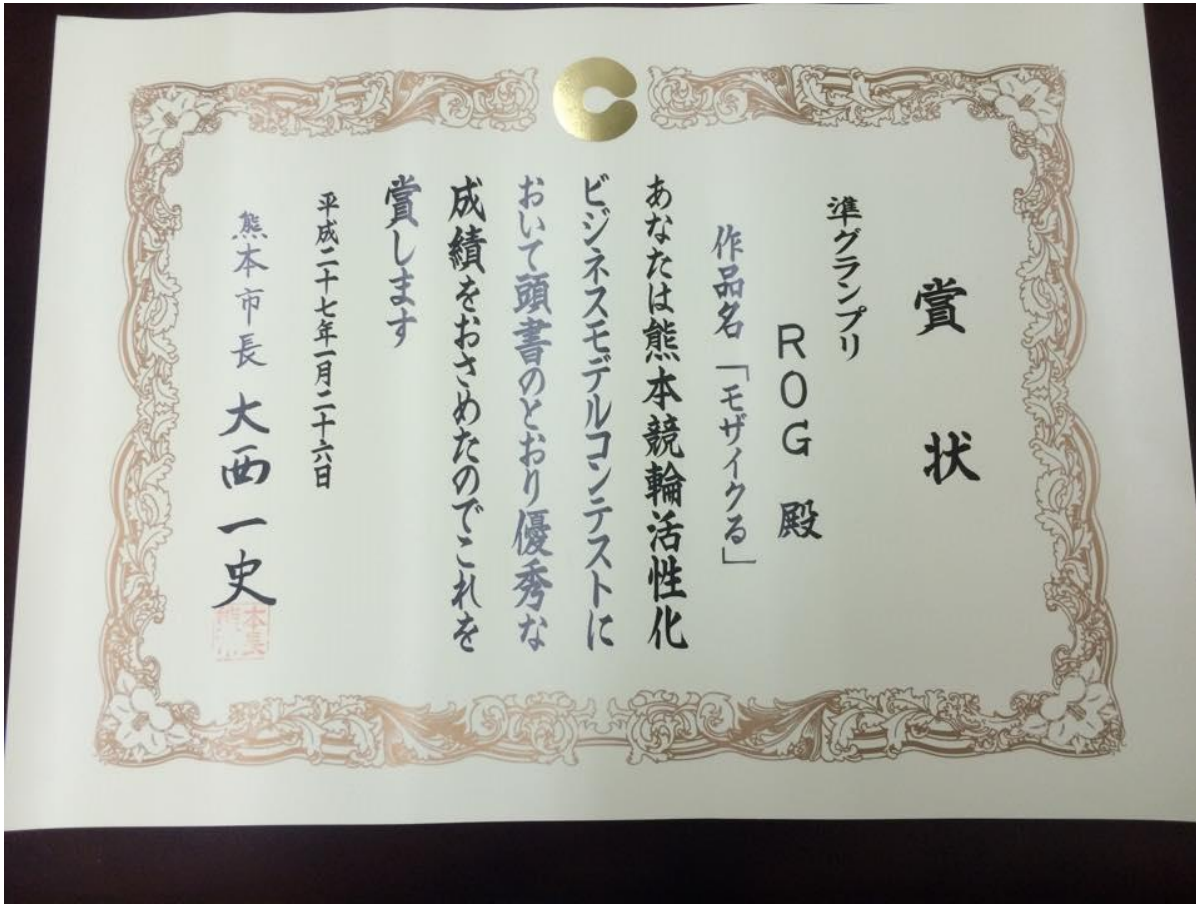 賞状
準グランプリ
ROG 殿
作品名「モザイクる」
あなたは熊本競輪活性化
ビジネスモデルコンテストに
おいて頭書のとおり優秀な
成績をおさめたのでこれを
賞します
平成二十七年一月二十六日
熊本市長 大西一史